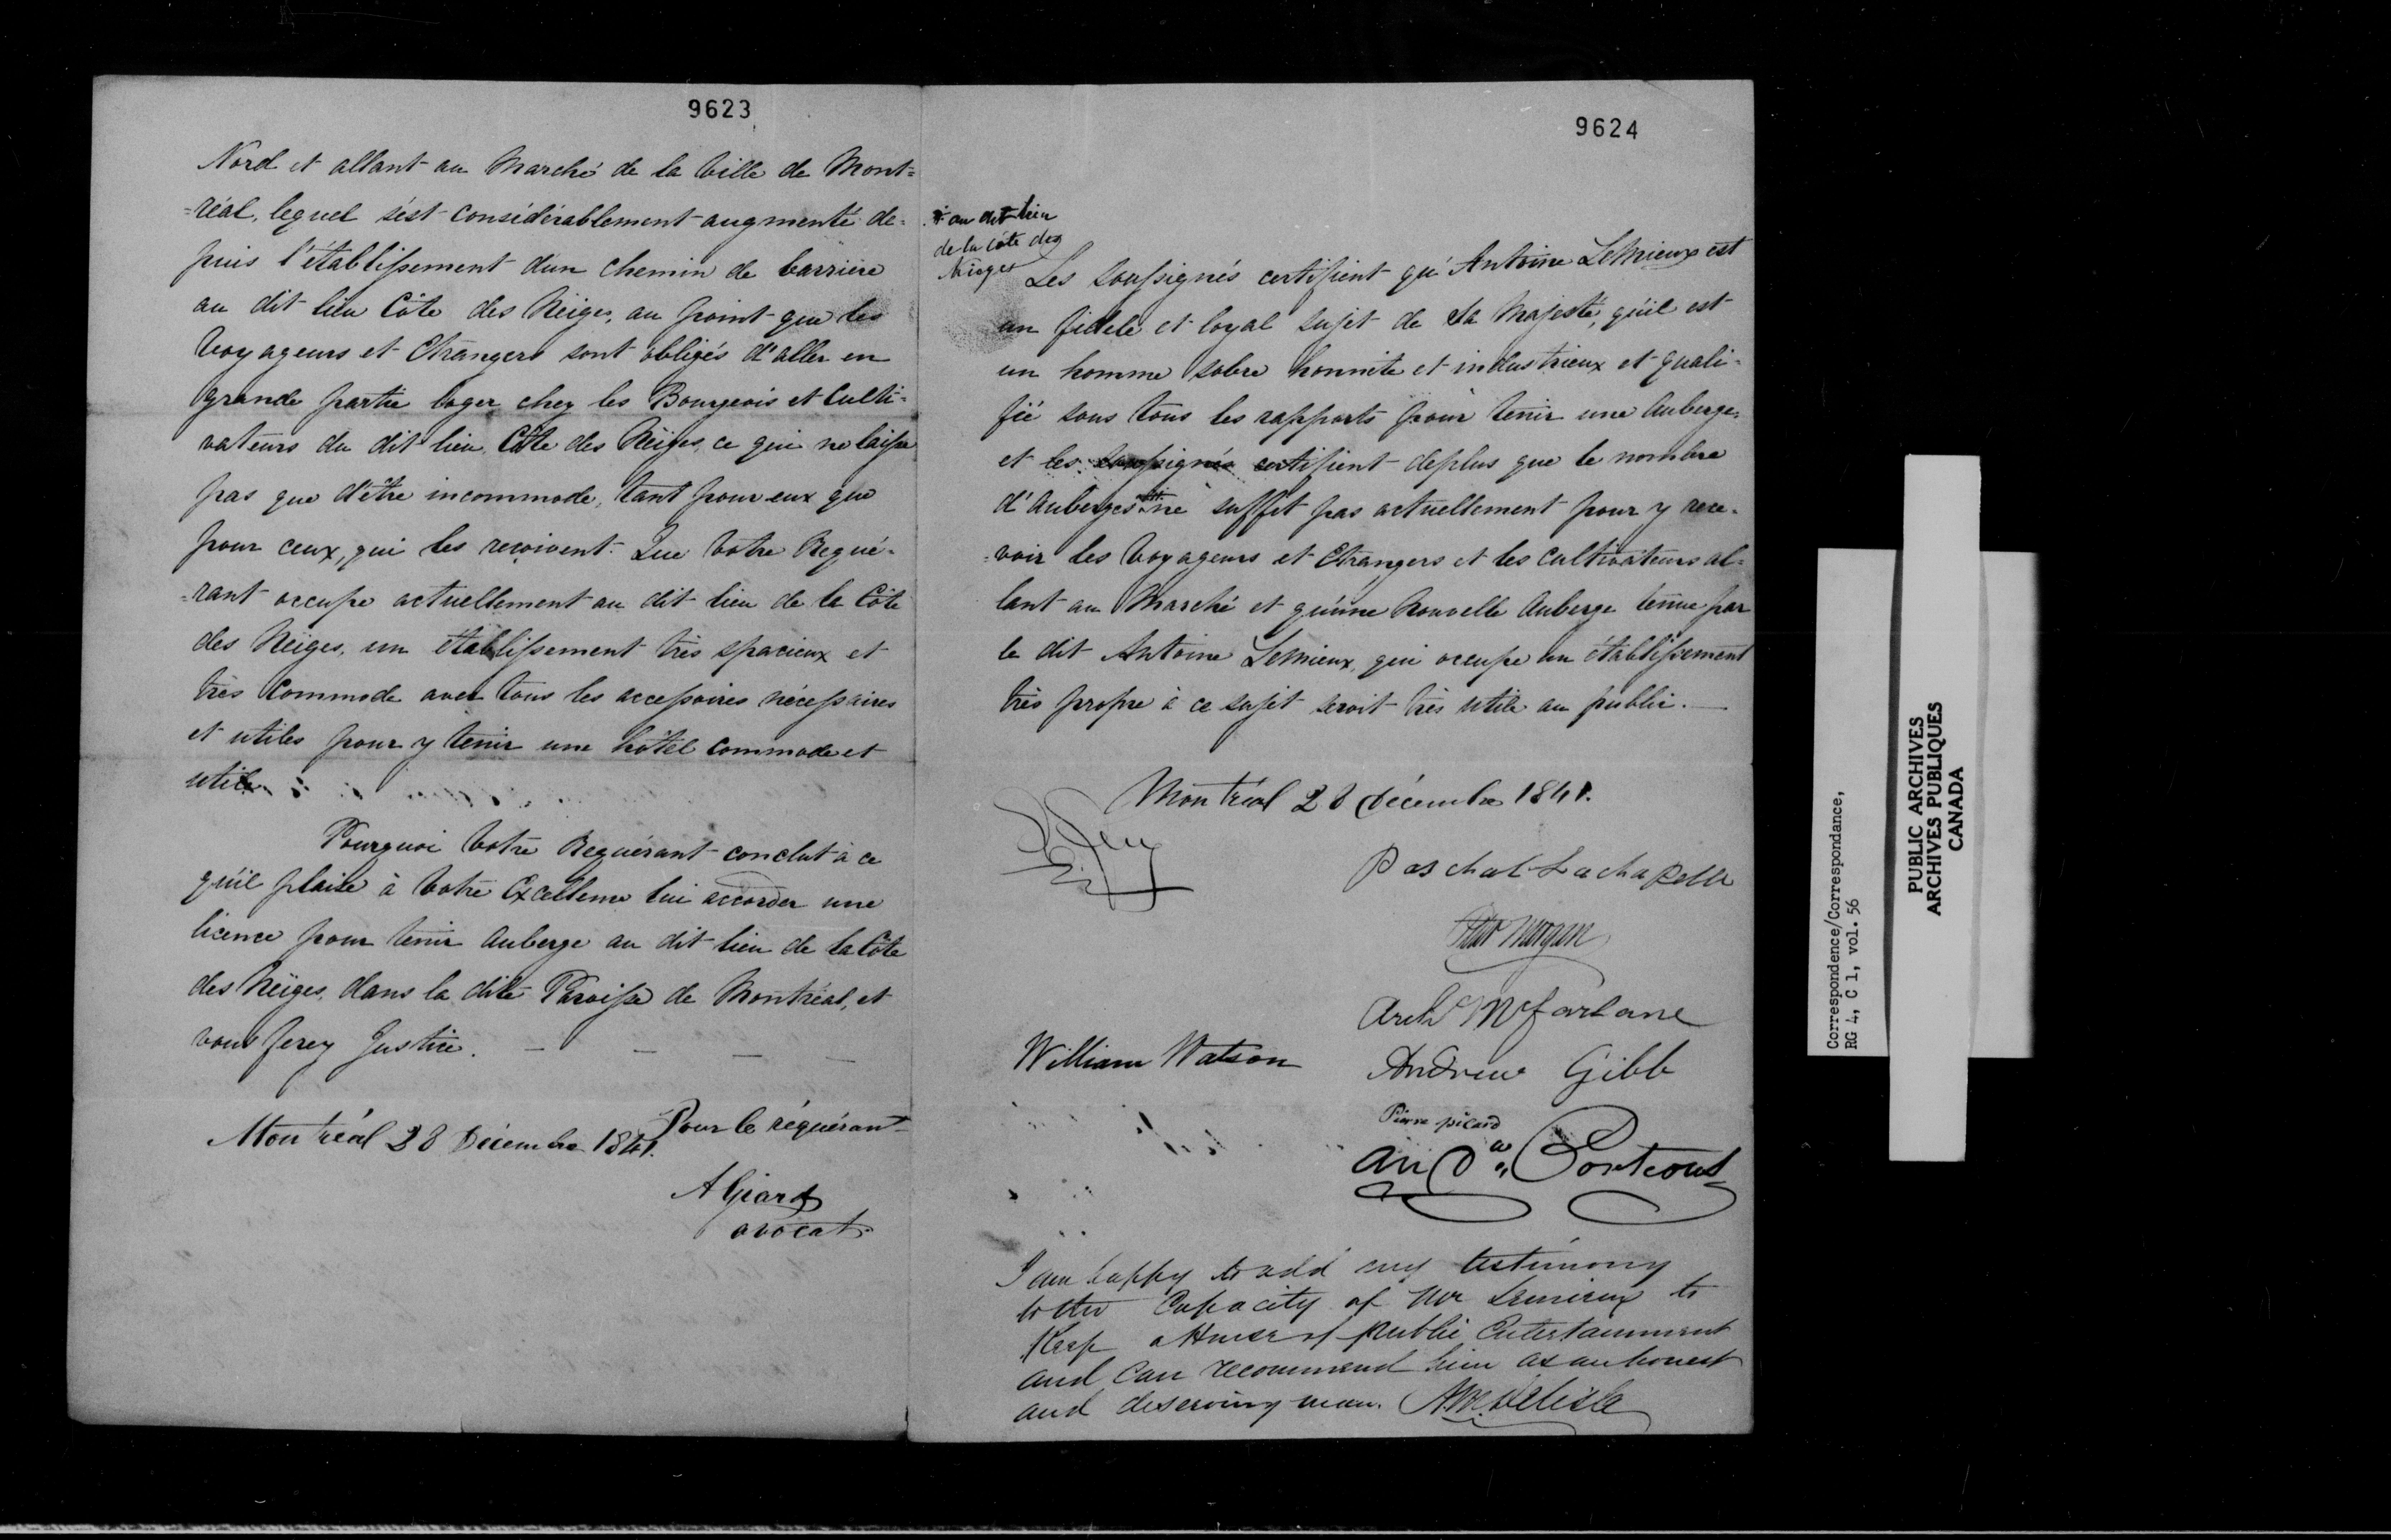 9623
Nord et allant au Marché de la Ville de Mont=
=réal, lequel s'est considérablement augmenté de=
puis l'établissement d'un chemin de barrière
au dit lieu Côte des Neiges, au point que les
Voyageurs et Etrangers sont obligés d'aller en
grande partie loger chez les Bourgeois et Culti=
vateurs du dit lieu, Côte des Neiges, ce qui ne laisse
pas que d'être incommode, tant pour eux que
pour ceux, qui les reçoivent. Que Votre Requé=
=rant occupe actuellement au dit lieu de la Côte
des Neiges, un établissement très spacieux et
très Commode avec tous les accessoires nécessaires
et utiles pour y tenir une hôtel Commode et
utile
Pourquoi Votre Requérant conclut à ce
qu'il plaise à Votre Excellence lui accorder une
licence pour tenir Auberge au dit lieu de la Côte
des Neiges, dans la dite Paroisse de Montréal, et
vous ferez Justice.
Montréal 28 Décembre 1841.
Pour le réquérant
A Girard
avocat
9624
* au dit lieu
de la Côte des
Neiges
Les Soussignés certifient qu'Antoine LeMieux est
un fidele et loyal sujet de Sa Majesté, qu'il est
un homme sobre honnête et industrieux et quali=
fié sous tous les rapports pour tenir une Auberge,
et les Soussignés certifient deplus que le nombre
d'Auberges * ne suffit pas actuellement pour y rece=
=voir les Voyageurs et Etrangers et les Cultivateurs al=
lant au Marché et qu'une Nouvelle Auberge tenue par
le dit Antoine LeMieux, qui occupe un établissement
très propre à ce sujet seroit très utile au public.
Montréal 28 Décembre 1841.
Paschal Lachapelle
Morgan
Archd McFarlane
William Watson
Andrew Gibb
Pierre picard
And.w Porteous
I am happy to add my testimony
to the Capacity of Mr Lemieux to
Keep a House of public Entertainment
and can recommend him as an honest
and deserving man. A.M. Delisle
Correspondence/Correspondance,
RG 4, C 1, vol. 56
PUBLIC ARCHIVES
ARCHIVES PUBLIQUES
CANADA